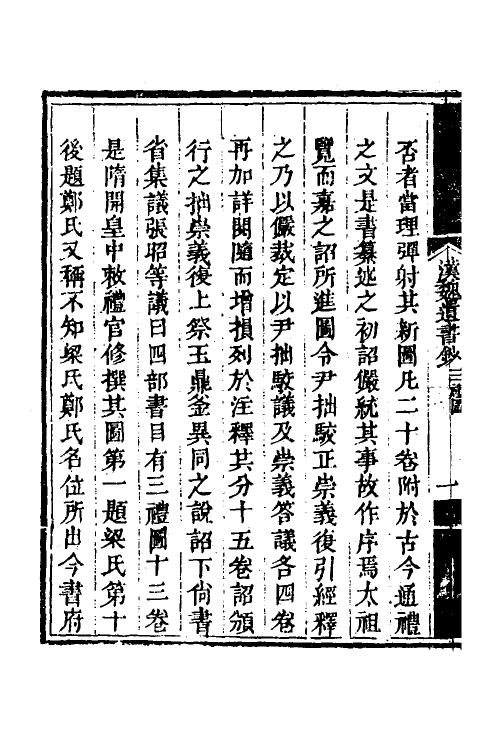 否者當理彈射其新圖凡二十卷附於古今通禮
之文是書纂述之初詔儼統其事故作序焉太祖
覽而嘉之詔所進圖令尹拙駮正崇義復引經釋
之乃以儼裁定以尹拙駮議及崇義答議各四卷
再加詳閱隨而增損列於注釋其分十五卷詔頒
行之拙崇義復上祭玉鼎釜異同之說詔下尙書
省集議張昭等議曰四部書目有三禮圖十三卷
是隋開皇中敕禮官修撰其圖第一題梁氏第十
後題鄭氏又稱不知梁氏鄭氏名位所出今書府
漢魏遺書鈔 三禮圖 一